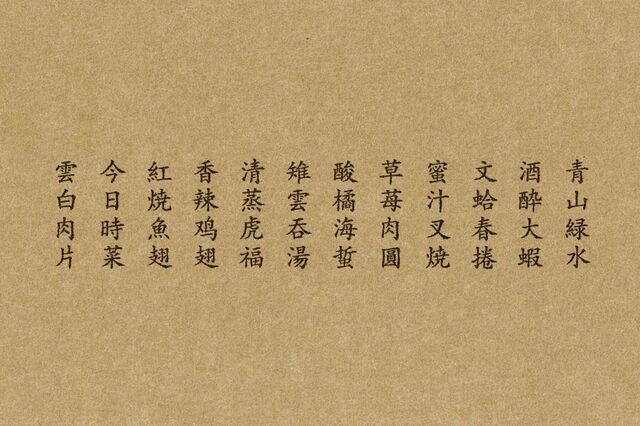 青山緑水
酒醉大蝦
文蛤春捲
蜜汁叉焼
草莓肉圓
酸橘海蜇
雉雲吞湯
清蒸虎福
香辣鸡翅
紅焼魚翅
今日時菜
雲白肉片